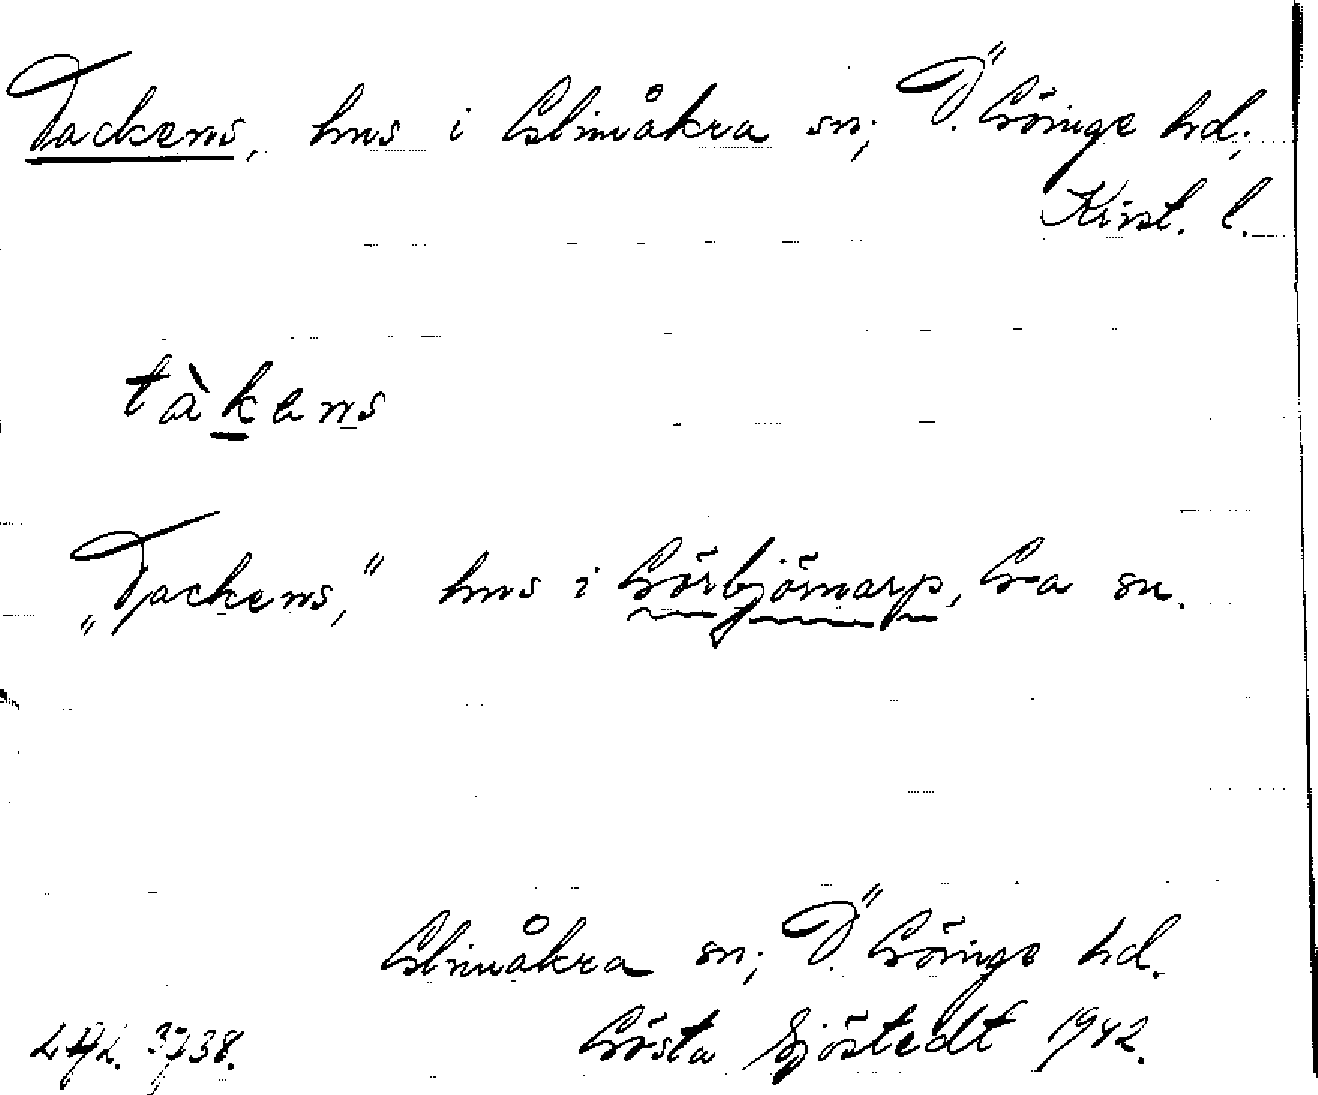 Tackens, hus i Glimåkra sn; Ö. Göinge hd;
Krist. l.
tàkens
„Tackens,” hus i Görbjörnarp, G-a sn.
Glimåkra sn; Ö. Göinge hd.
Gösta Sjöstedt 1942.